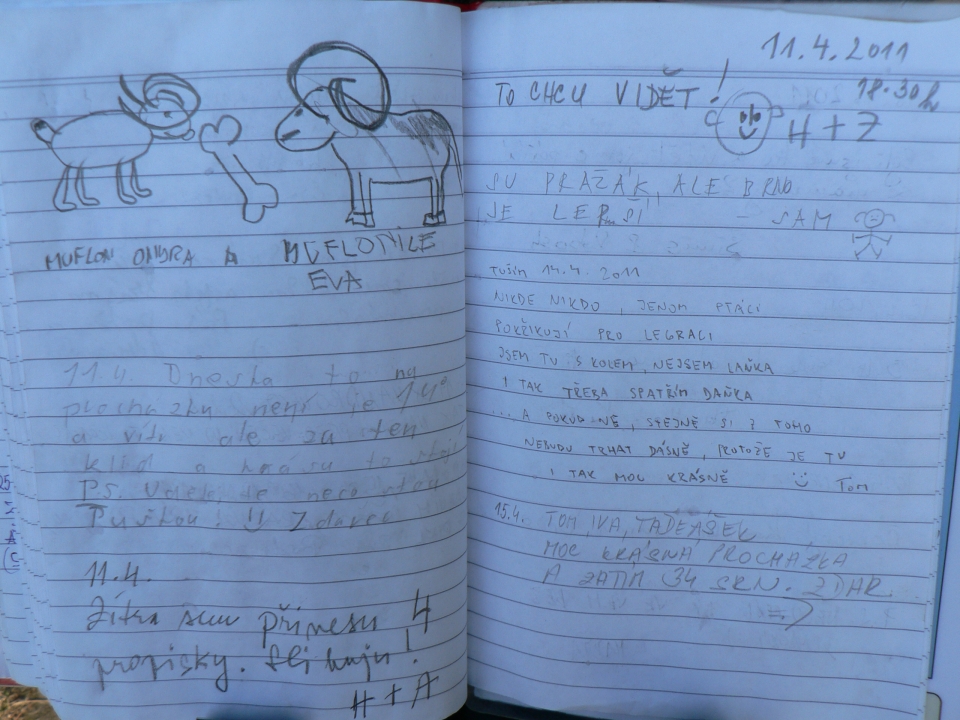 MUFLON ONDRA A MUFLONICE
EVA
11.4. Dneska to na
procházku není je 14°
a vítr ale za ten
klid a krásu to stojí
PS.
Zdarec
11.4.
Zítra sem přinesu 4
propisky. Slibuju!
H + A
11.4.2011
TO CHCU VIDĚT! 18.30h
H + Z
SU PRAŽÁK, ALE BRNO
JE LEPŠÍ - SAM
TUŠIM 14.4. 2011
NIKDE NIKDO, JENOM PTÁCI
POKŘIKUJÍ PRO LEGRACI
JSEM TU S KOLEM, NEJSEM LAŇKA
I TAK TŘEBA SPATŘÍM DAŇKA
... A POKUD NE, STEJNĚ SI Z TOHO
NEBUDU TRHAT DÁSNĚ, PROTOŽE JE TU
I TAK MOC KRÁSNĚ Tom
15.4. TOM, IVA, TADEÁŠEK
MOC KRÁSNÁ PROCHÁZKA
A ZATIM 34 SRN. ZDAR